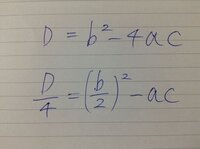 D = b² - 4ac
D/4 = (b/2)² - ac